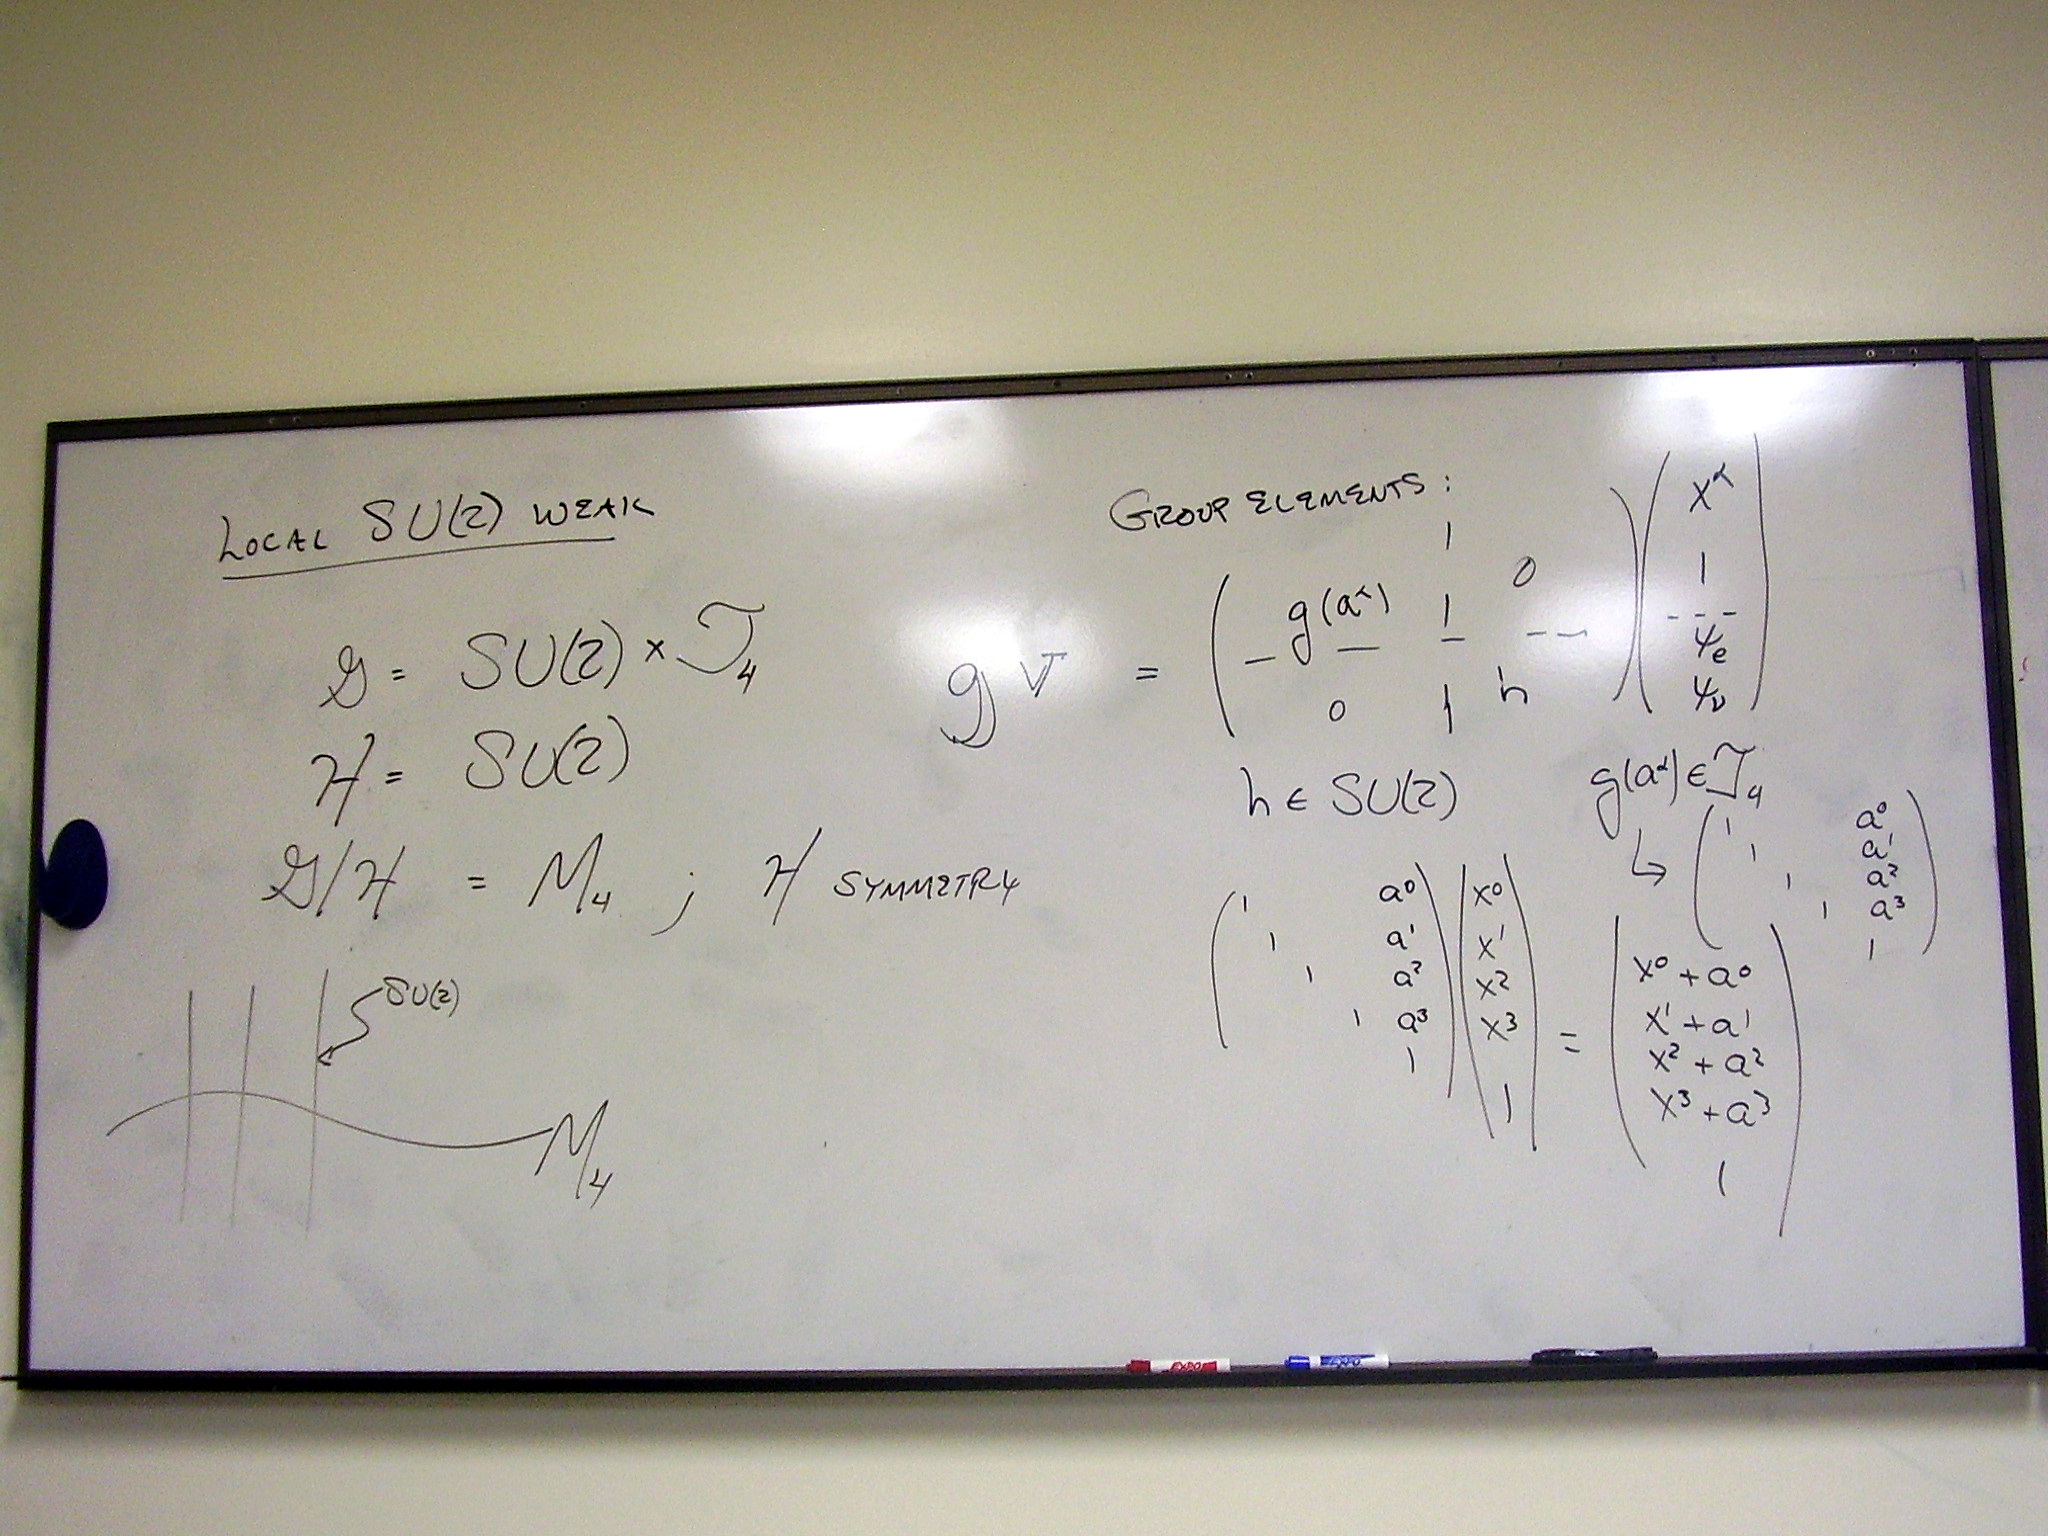 LOCAL SU(2) WEAK
G = SU(2) × T₄
H = SU(2)
G/H = M₄ ; H SYMMETRY
SU(2)
M₄
GROUP ELEMENTS:
g V = ( g(a^α) | 0 ) ( x^α
1
- - - -
0 | h ) ψ_e
ψ_ν )
h ∈ SU(2)
g(a^α) ∈ T₄
↳ ( 1 a⁰
1 a¹
1 a²
1 a³
1 )
( 1 a⁰ ) ( x⁰ ) = ( x⁰ + a⁰ )
1 a¹ x¹ x¹ + a¹
1 a² x² x² + a²
1 a³ x³ x³ + a³
1 1 1
EXPO
EXPO